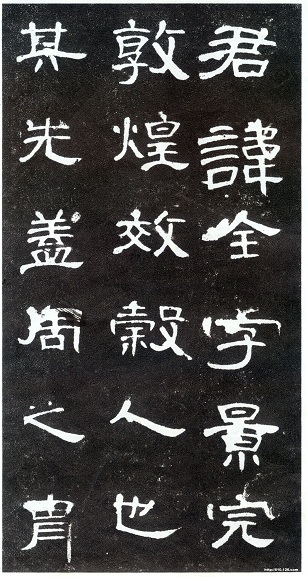 君諱全字景完
敦煌效穀人也
其先蓋周之胄
http://910.126.com